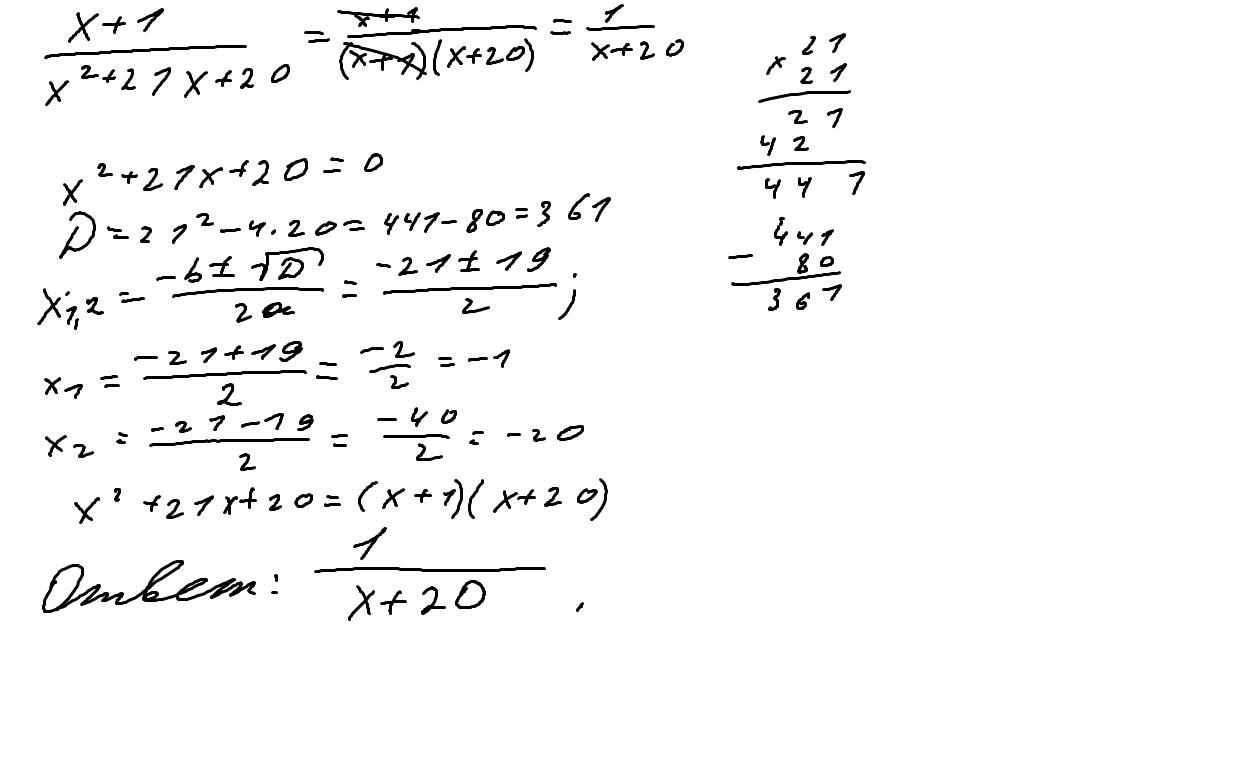 (x+1)/(x²+21x+20) = (x+1)/((x+1)(x+20)) = 1/(x+20)
x²+21x+20=0
D=21²-4·20=441-80=361
x₁,₂ = (-b±√D)/(2a) = (-21±19)/2;
x₁ = (-21+19)/2 = -2/2 = -1
x₂ = (-21-19)/2 = -40/2 = -20
x²+21x+20=(x+1)(x+20)
Ответ: 1/(x+20).
× 21
21
21
42
441
- 441
80
361